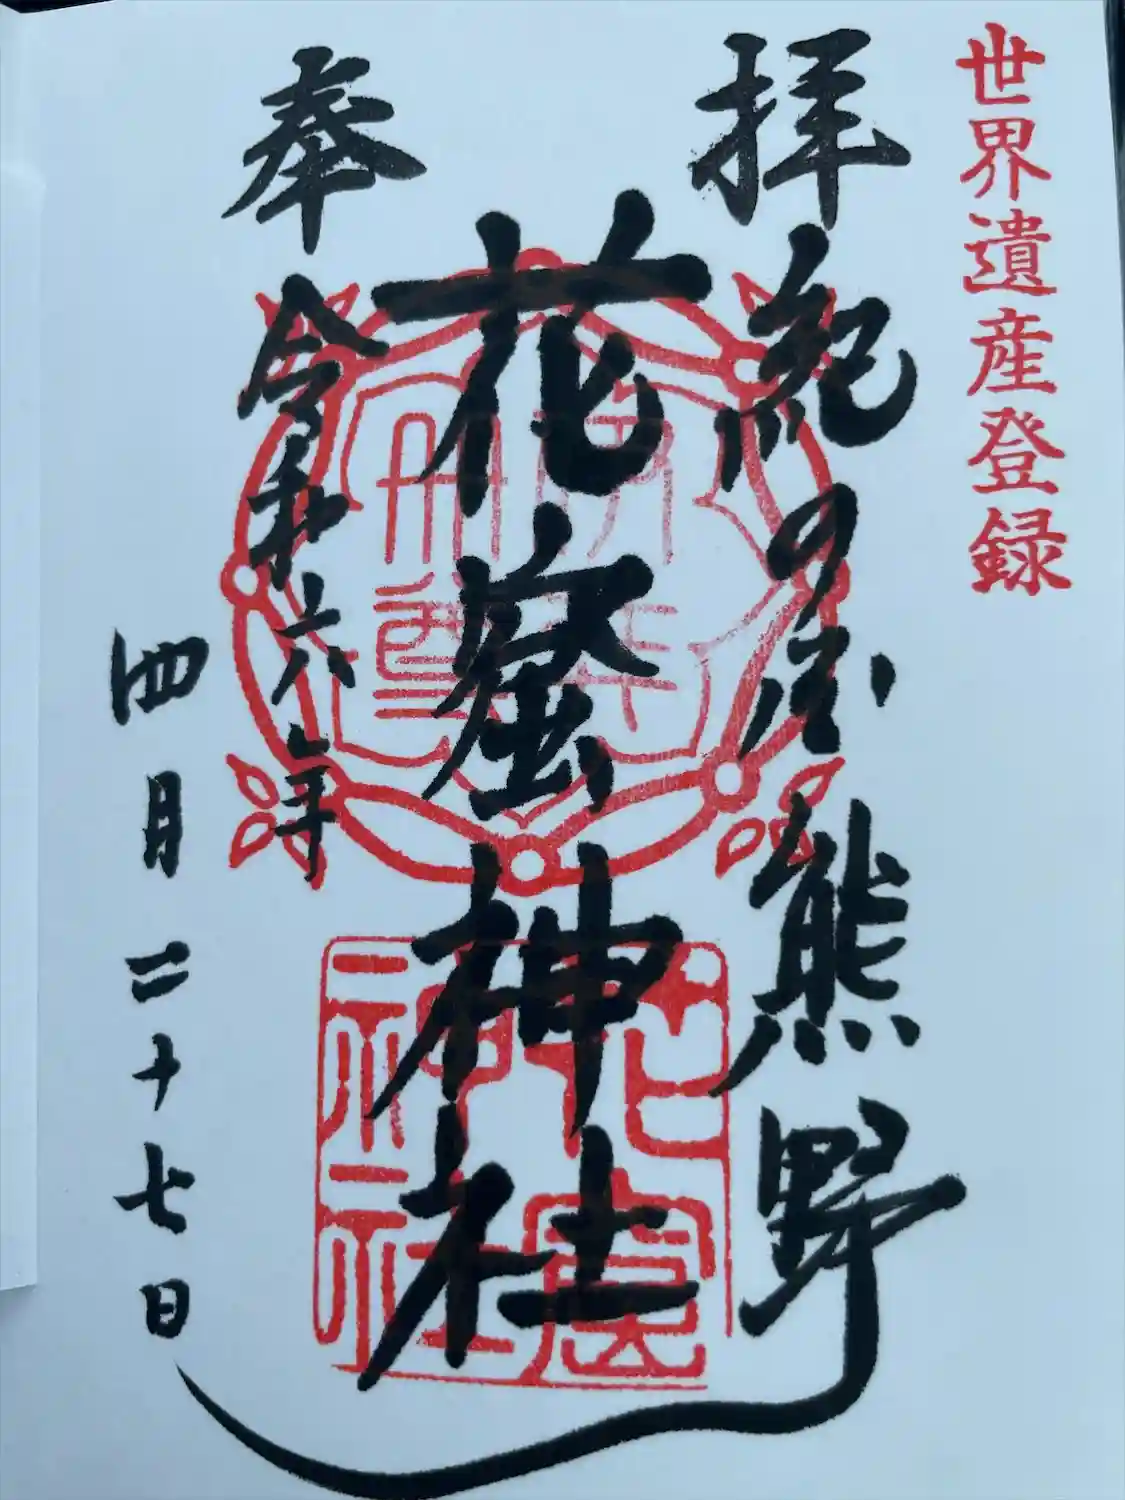 世界遺産登録
拝
紀の国 熊野
花窟神社
奉
令和六年
四月二十七日
花窟
神社